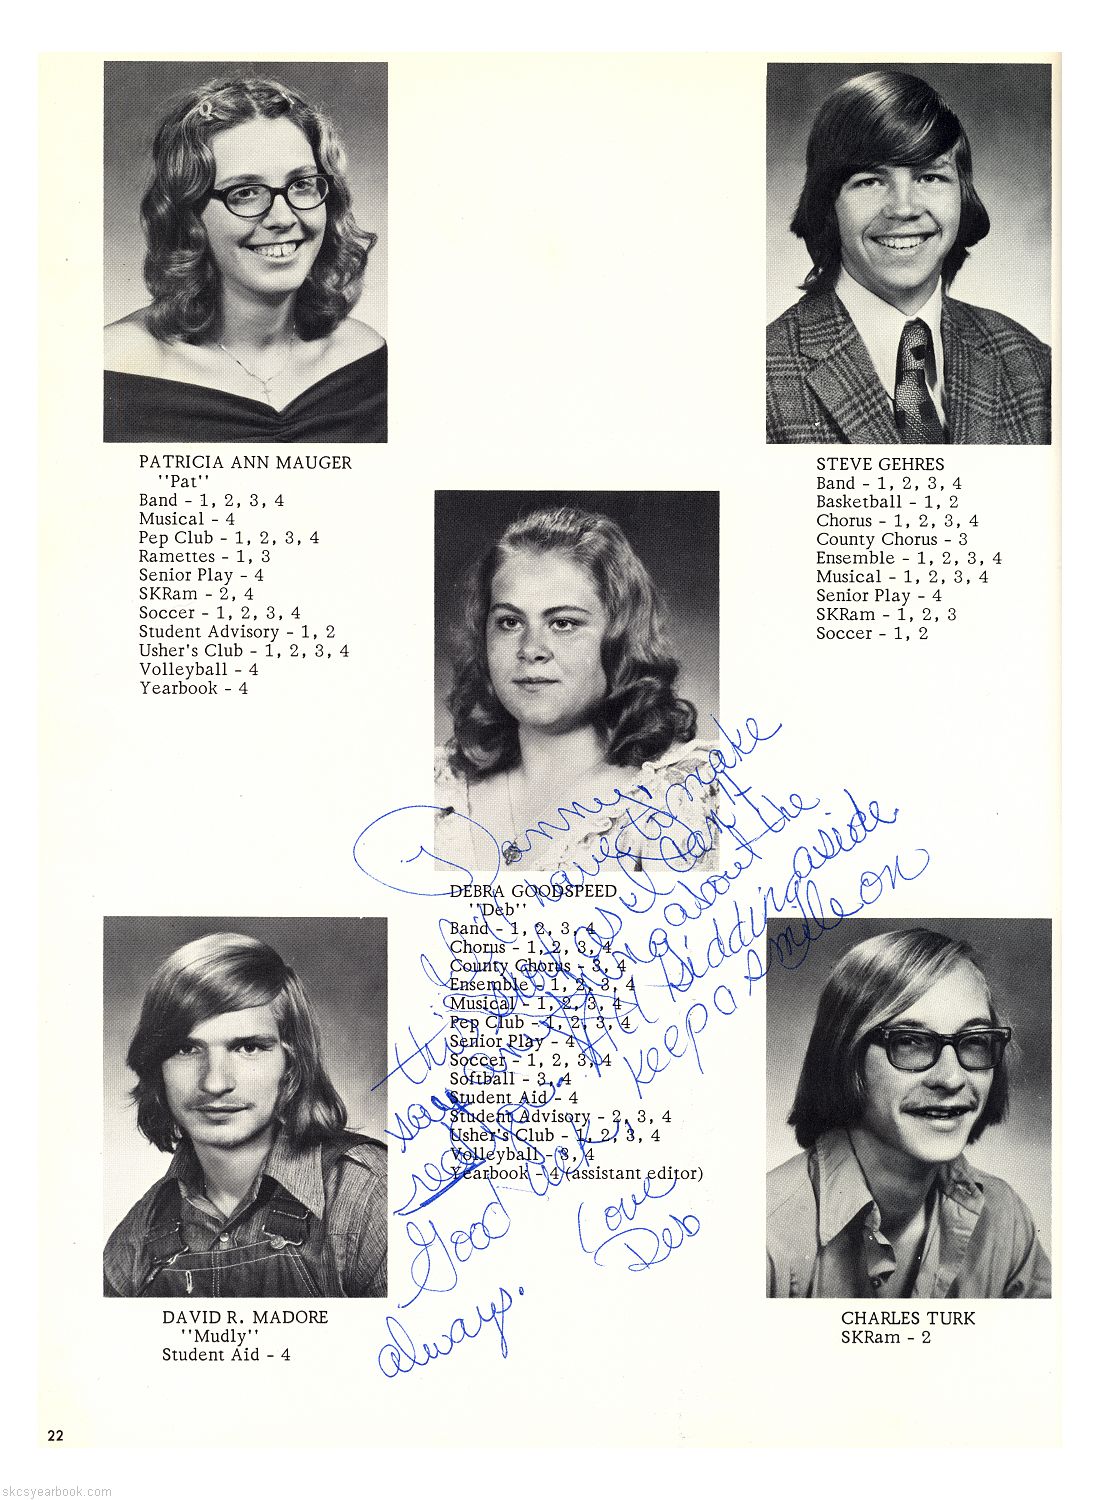 PATRICIA ANN MAUGER
"Pat"
Band - 1, 2, 3, 4
Musical - 4
Pep Club - 1, 2, 3, 4
Ramettes - 1, 3
Senior Play - 4
SKRam - 2, 4
Soccer - 1, 2, 3, 4
Student Advisory - 1, 2
Usher's Club - 1, 2, 3, 4
Volleyball - 4
Yearbook - 4
STEVE GEHRES
Band - 1, 2, 3, 4
Basketball - 1, 2
Chorus - 1, 2, 3, 4
County Chorus - 3
Ensemble - 1, 2, 3, 4
Musical - 1, 2, 3, 4
Senior Play - 4
SKRam - 1, 2, 3
Soccer - 1, 2
DEBRA GOODSPEED
"Deb"
Band - 1, 2, 3, 4
Chorus - 1, 2, 3, 4
County Chorus - 3, 4
Ensemble - 1, 2, 3, 4
Musical - 1, 2, 3, 4
Pep Club - 1, 2, 3, 4
Senior Play - 4
Soccer - 1, 2, 3, 4
Softball - 3, 4
Student Aid - 4
Student Advisory - 2, 3, 4
Usher's Club - 1, 2, 3, 4
Volleyball - 3, 4
Yearbook - 4 (assistant editor)
Danny,
I'll have to make
this short cause I can't
say anything about the
real you. All kidding aside
keep a smile on
Good luck,
always.
Love
Deb
DAVID R. MADORE
"Mudly"
Student Aid - 4
CHARLES TURK
SKRam - 2
22
skcsyearbook.com